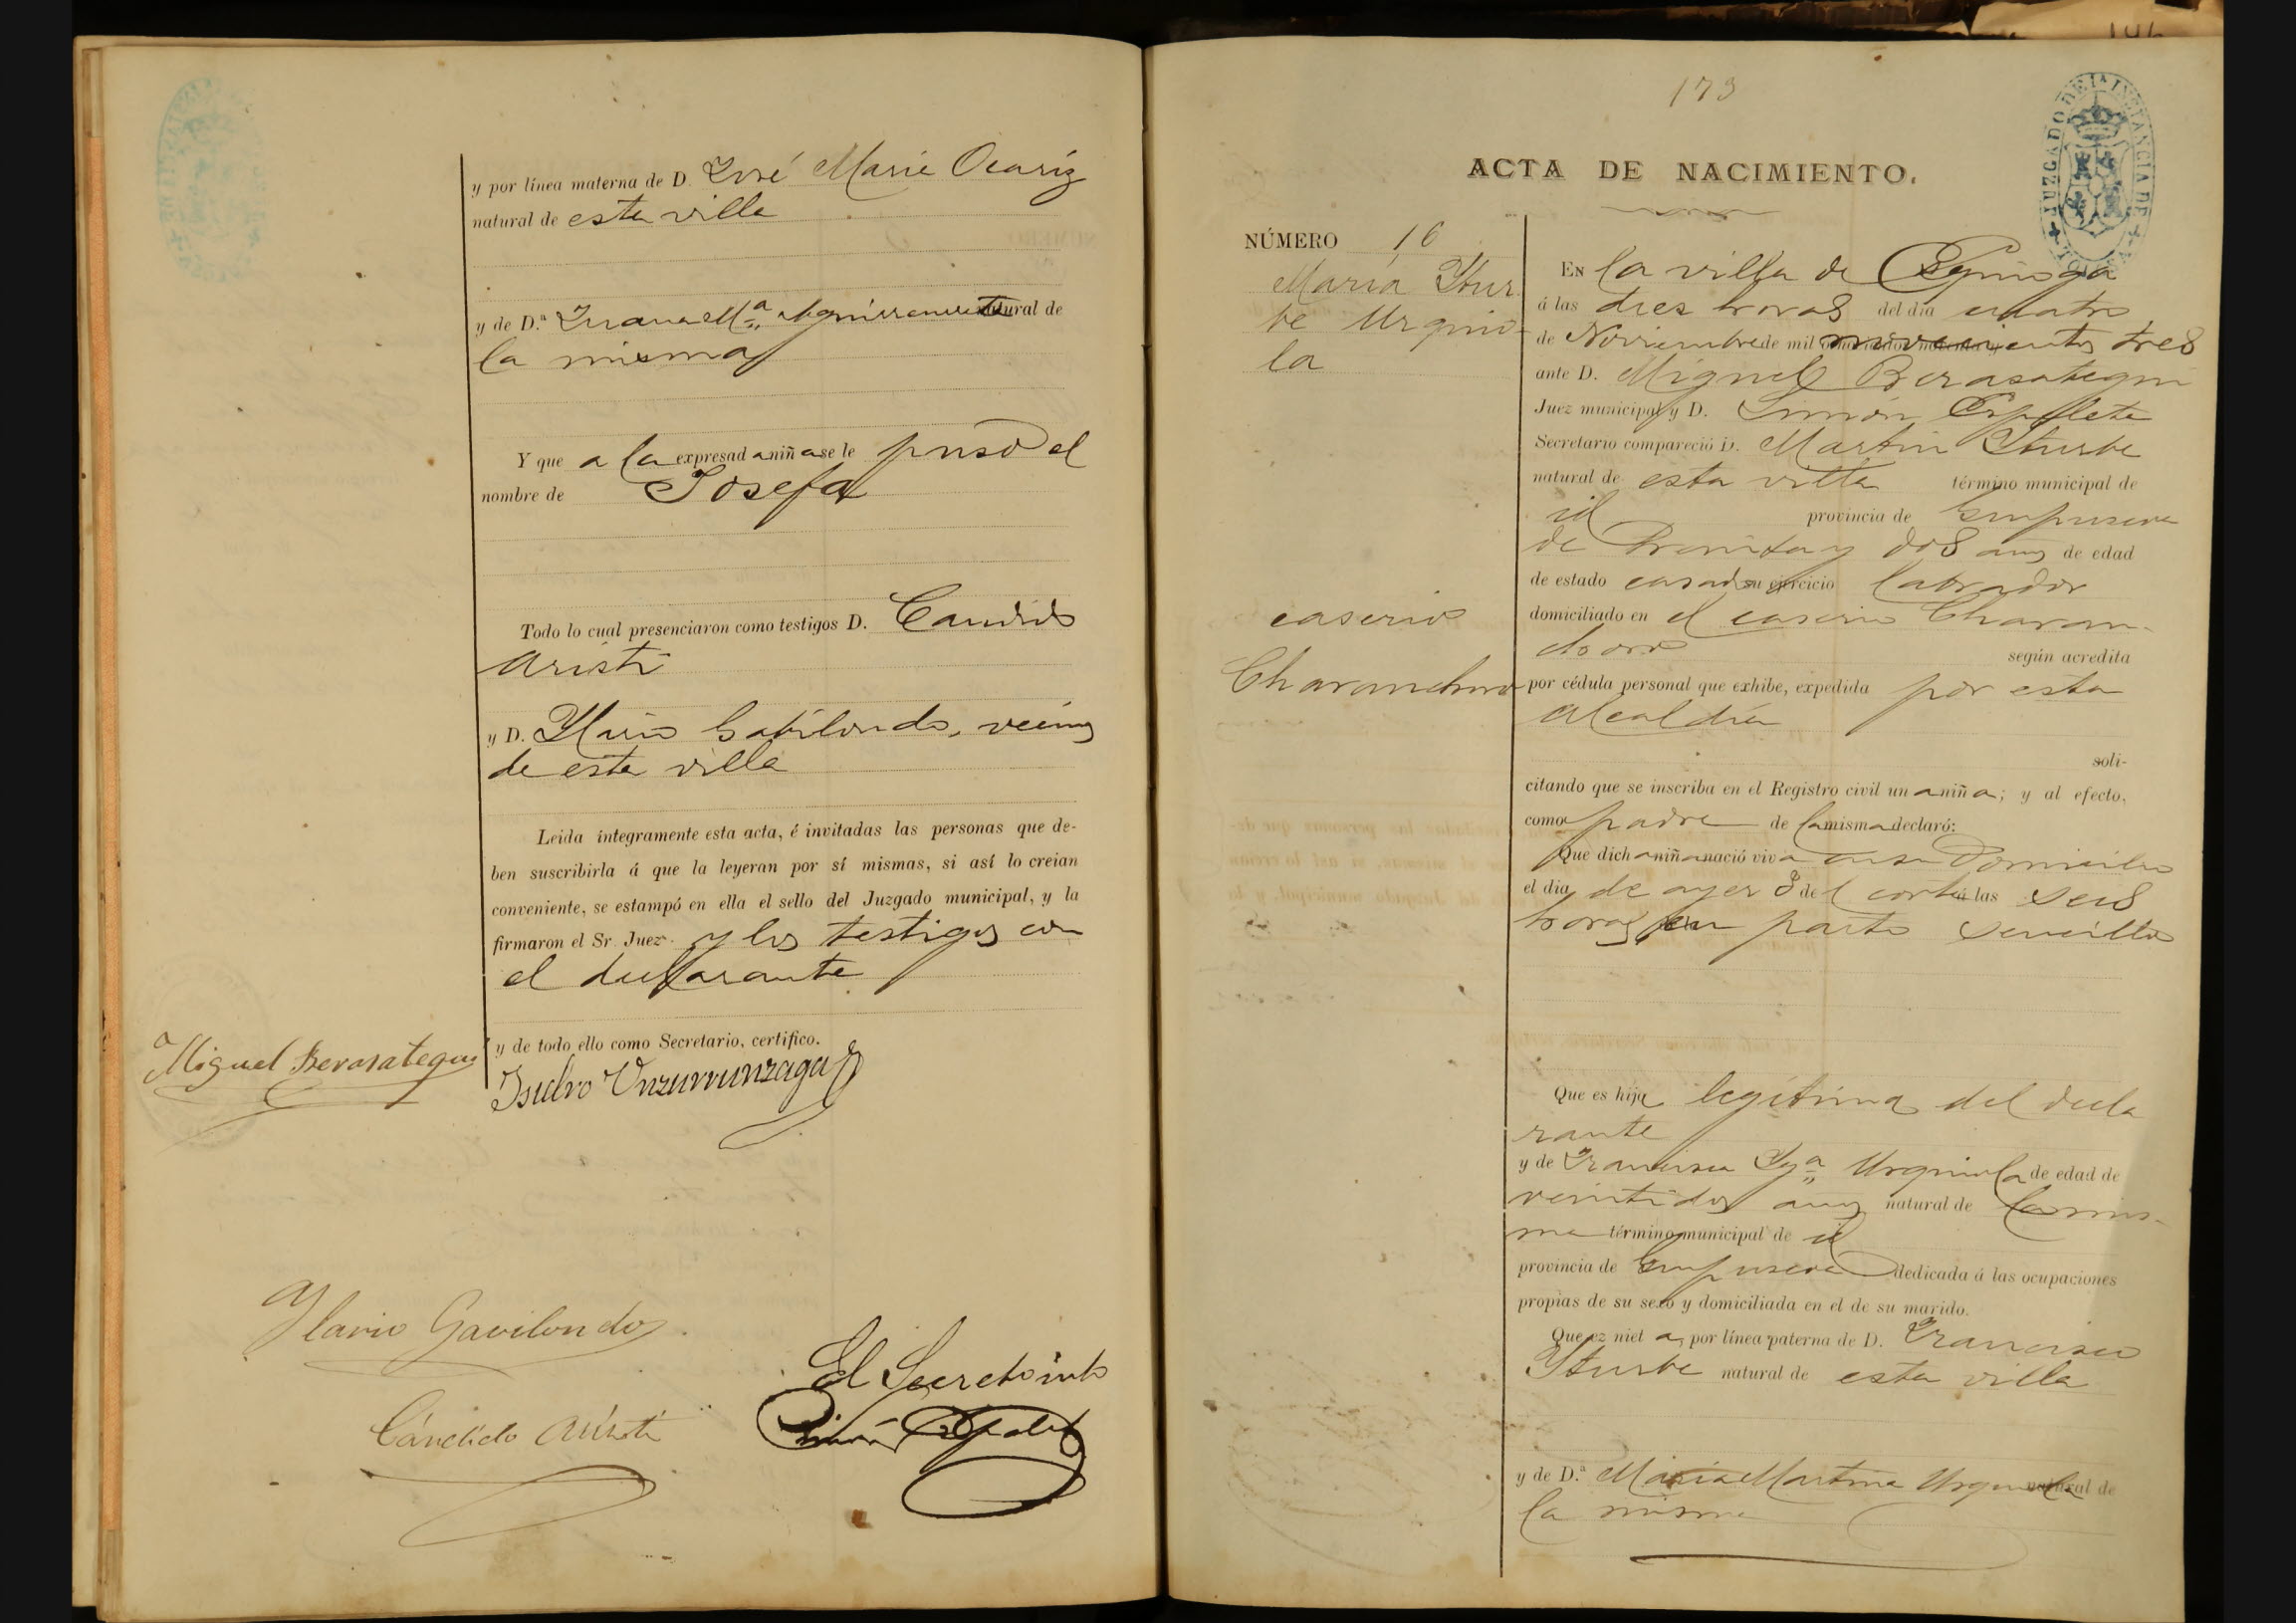 y por línea materna de D. José Maria Ocariz
natural de esta villa
y de D.ª Juana M.ª natural de
la misma
Y que a la expresada niña se le puso el
nombre de Josefa
Todo lo cual presenciaron como testigos D. Candido
Aristi
y D. Ylario Gabilondo, vecinos
de esta villa
Leida íntegramente esta acta, é invitadas las personas que de-
ben suscribirla á que la leyeran por sí mismas, si así lo creian
conveniente, se estampó en ella el sello del Juzgado municipal, y la
firmaron el Sr. Juez y los testigos con
el declarante
y de todo ello como Secretario, certifico.
Miguel Berasategui
Isidro Unzurrunzaga
Ylario Gavilondo
El Secretario
Cándido Aristi
Simón Espeleta
173
ACTA DE NACIMIENTO.
JUZGADO DE 1ª INSTANCIA DE
NÚMERO 16
María Ytur
be Urquio
la
caserio
Charanchoro
En la villa de
á las diez horas del dia cuatro
de Noviembre de mil novecientos tres
ante D. Miguel Berasategui
Juez municipal y D. Simón Espeleta
Secretario compareció D. Martin Yturbe
natural de esta villa término municipal de
id provincia de Guipuscoa
de treinta y dos años de edad
de estado casado su ejercicio labrador
domiciliado en el caserio Charan-
choro según acredita
por cédula personal que exhibe, expedida por esta
Alcaldía
soli-
citando que se inscriba en el Registro civil una niña; y al efecto,
como padre de la misma declaró:
Que dicha niña nació viva en su domicilio
el dia de ayer 3 del corte á las seis
horas en parto sencillo
Que es hija legítima del decla
rante
y de Francisca Urquiola de edad de
veintidos años natural de la mis-
ma término municipal de id
provincia de Guipuscoa dedicada á las ocupaciones
propias de su sexo y domiciliada en el de su marido.
Que ez nieta, por línea paterna de D. Francisco
Yturbe natural de esta villa
y de D.ª Maria Martina Urquiola natural de
la misma